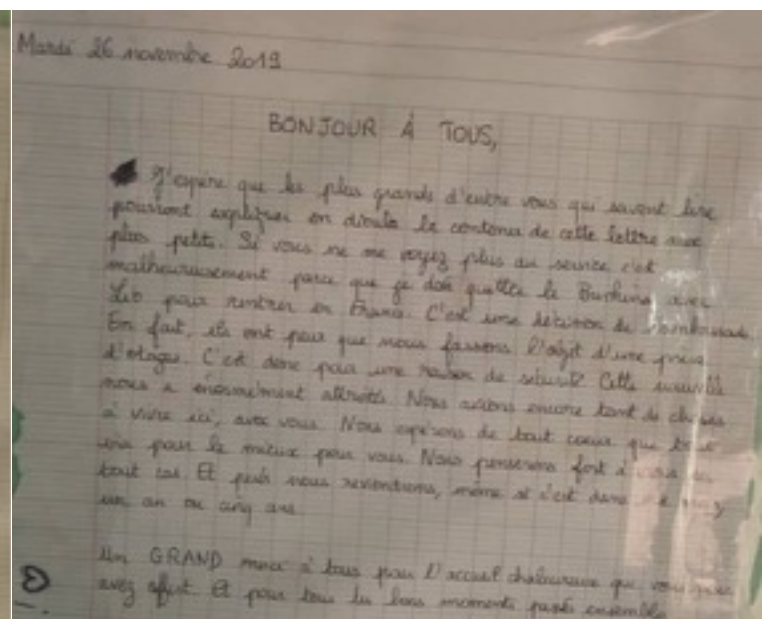 Mardi 26 novembre 2019
BONJOUR À TOUS,
J'espère que les plus grands d'entre vous qui savent lire
pourront expliquer en dioula le contenu de cette lettre aux
plus petits. Si vous ne me voyez plus au service c'est
malheureusement parce que je dois quitter le Burkina avec
Léo pour rentrer en France. C'est une décision de l'ambassade.
En fait, ils ont peur que nous fassions l'objet d'une prise
d'otages. C'est donc pour une raison de sécurité. Cette nouvelle
nous a énormément attristé. Nous avions encore tant de choses
à vivre ici, avec vous. Nous espérons de tout coeur que tout
ira pour le mieux pour vous. Nous penserons fort à vous en
tout cas. Et puis nous reviendrons, même si c'est dans
un an ou cinq ans.
Un GRAND merci à tous pour l'accueil chaleureux que vous nous
avez offert. Et pour tous les bons moments passés ensemble.